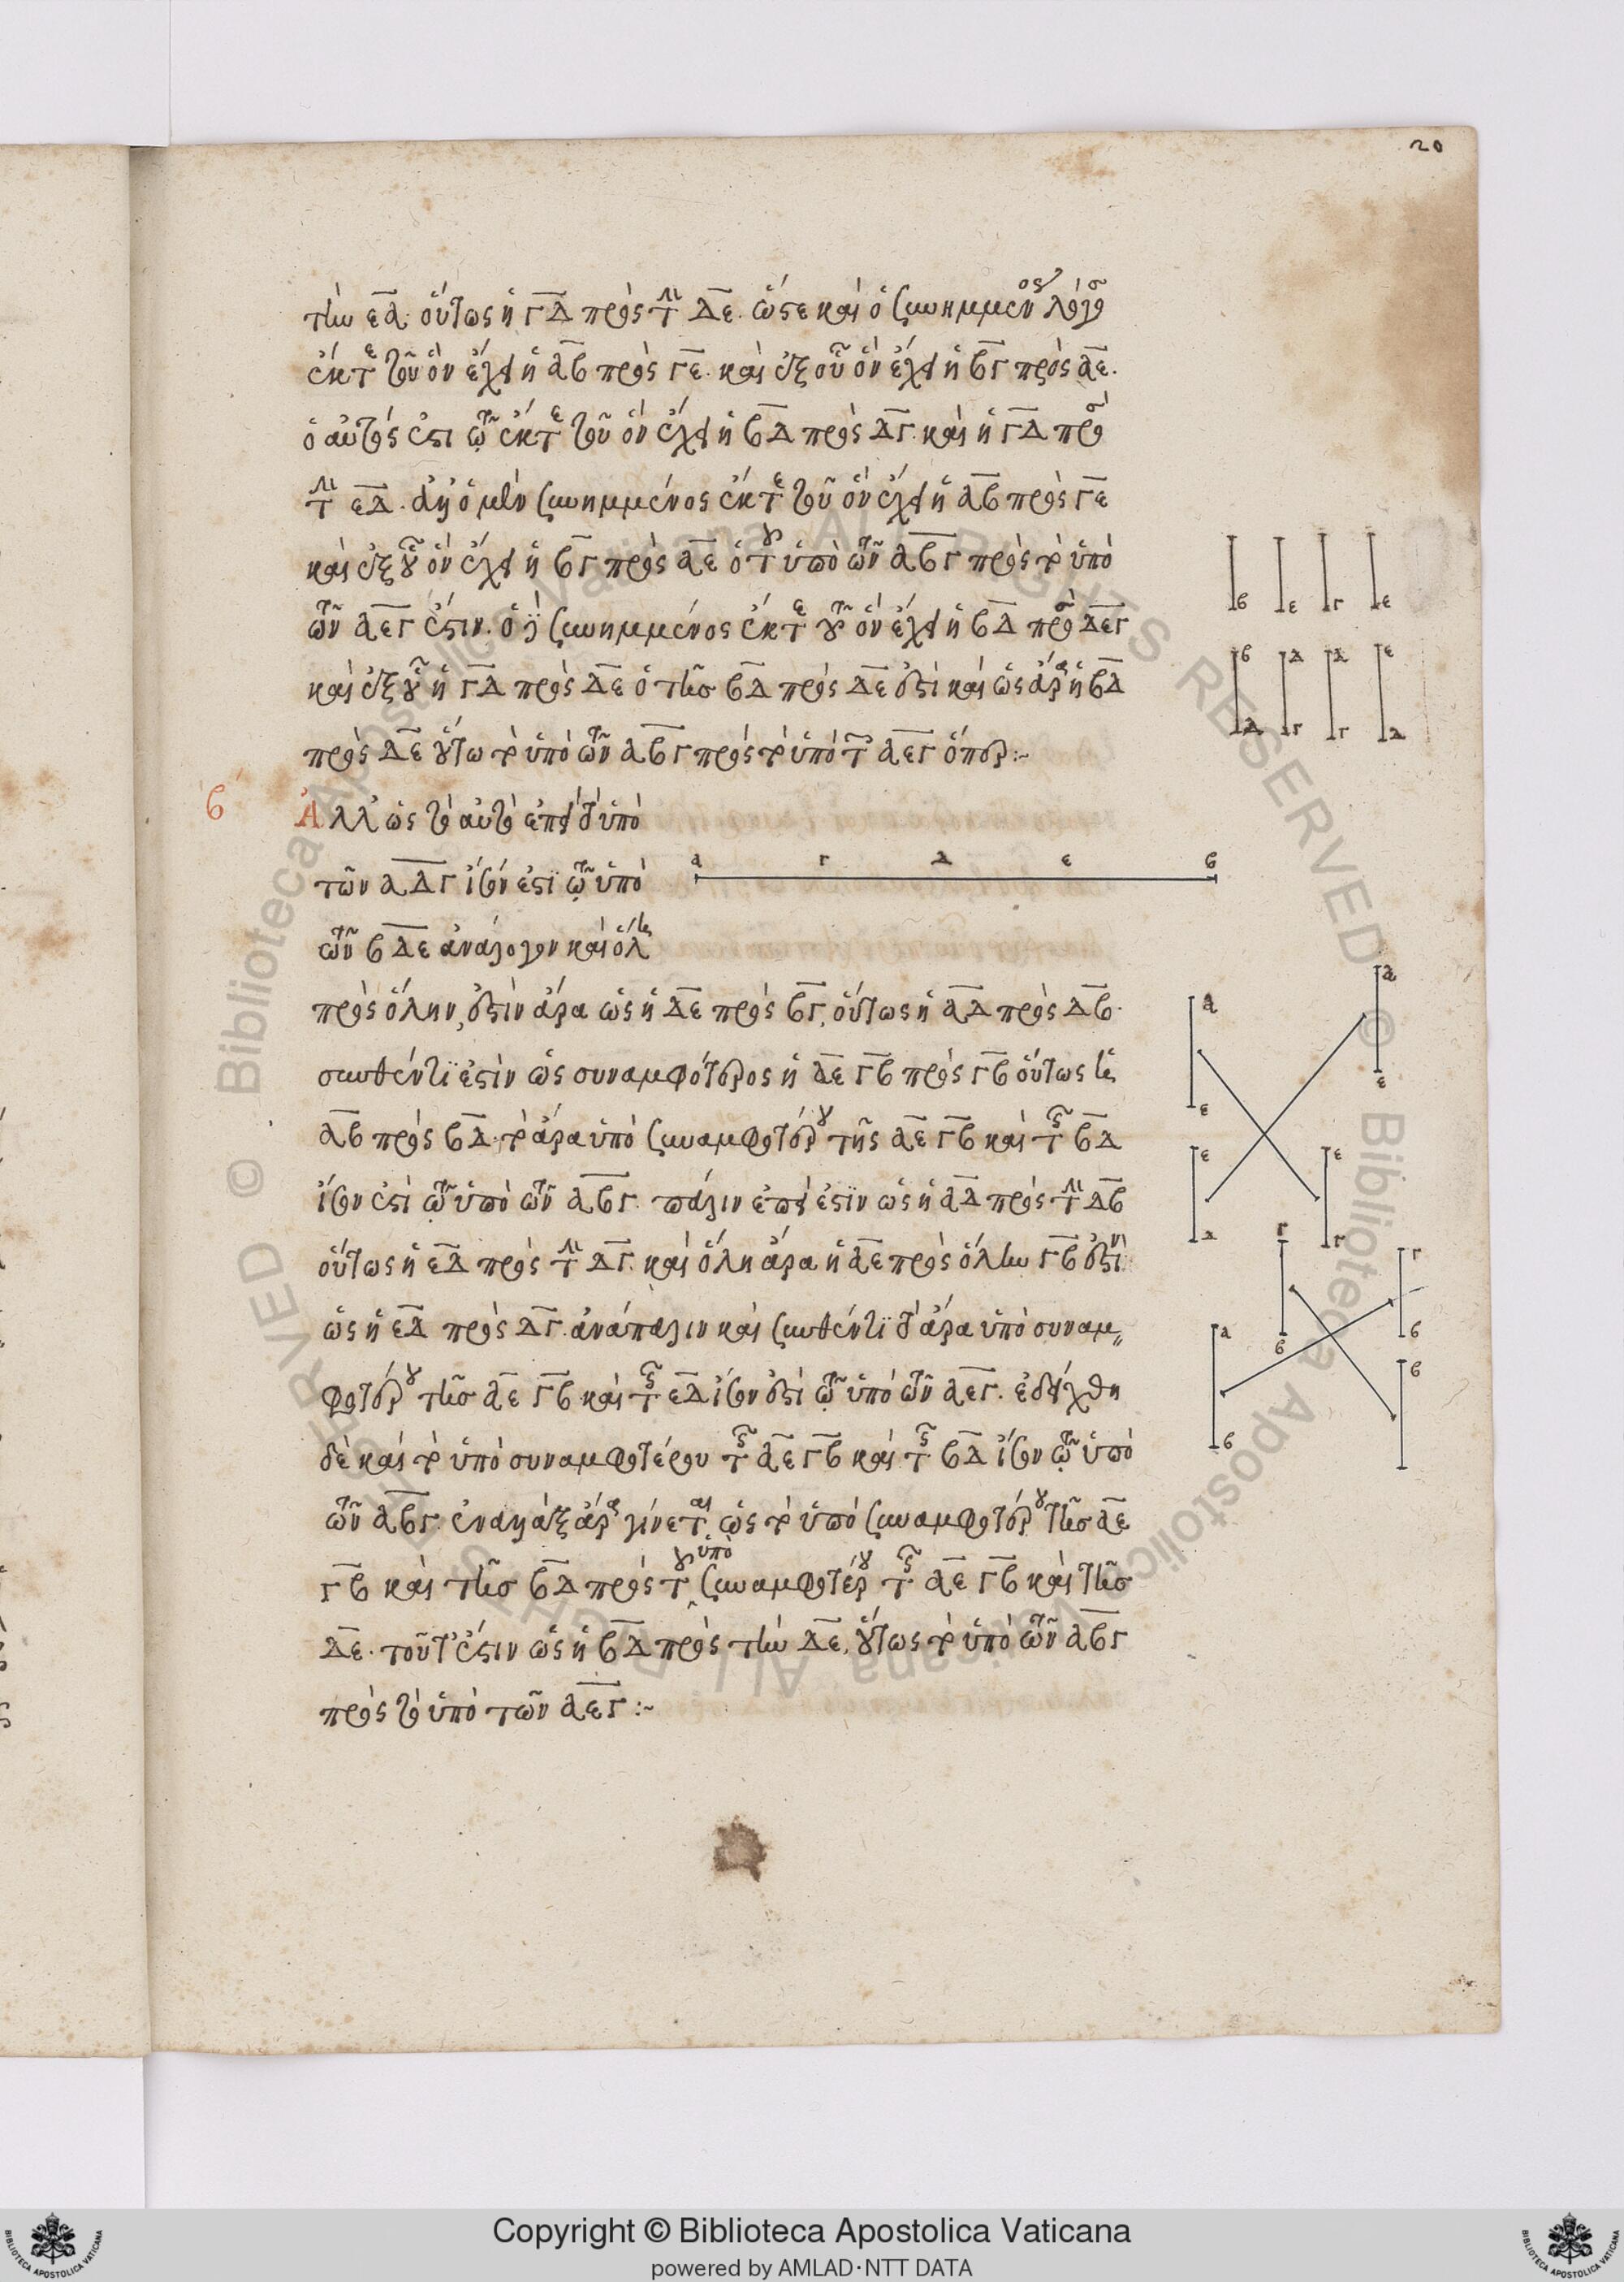 20
τὴν εα οὕτως ἡ γδ πρὸς τὴν δε. ὥστε καὶ ὁ συνημμένος λόγος
ἔκ τε τοῦ ὃν ἔχει ἡ αβ πρὸς γε. καὶ ἐξ οὗ ὃν ἔχει ἡ βγ πρὸς αε.
ὁ αὐτός ἐστι τῷ ἔκ τε τοῦ ὃν ἔχει ἡ βδ πρὸς δγ. καὶ ἡ γδ πρὸς
τὴν εδ. ἀλλ' ὁ μὲν συνημμένος ἔκ τε τοῦ ὃν ἔχει ἡ αβ πρὸς γε
καὶ ἐξ οὗ ὃν ἔχει ἡ βγ πρὸς αε ὁ τοῦ ὑπὸ τῶν αβγ πρὸς τὸ ὑπὸ
τῶν αεγ ἐστιν. ὁ δὲ συνημμένος ἔκ τε τοῦ ὃν ἔχει ἡ βδ πρὸς δεγ
καὶ ἐξ οὗ ἡ γδ πρὸς δε ὁ τῆς βδ πρὸς δε ἐστὶ καὶ ὡς ἄρα ἡ βδ
πρὸς δε οὕτω τὸ ὑπὸ τῶν αβγ πρὸς τὸ ὑπὸ τῶν αεγ ὅπερ:~
β Ἀλλ ὡς τὸ αὐτὸ ἐπεὶ τὸ ὑπὸ
τῶν αδγ ἴσον ἐστὶ τῷ ὑπὸ
α γ δ ε β
τῶν βδε ἀνάλογον καὶ ὅλη
πρὸς ὅλην, ἐστὶν ἄρα ὡς ἡ δε πρὸς βγ, οὕτως ἡ αδ πρὸς δβ.
συνθέντι ἐστὶν ὡς συναμφότερος ἡ αε γβ πρὸς γβ οὕτως ἡ
αβ πρὸς βδ. τὸ ἄρα ὑπὸ συναμφοτέρου τῆς αε γβ καὶ τῆς βδ
ἴσον ἐστὶ τῷ ὑπὸ τῶν αβγ. πάλιν ἐπεὶ ἐστὶν ὡς ἡ αδ πρὸς τὴν δβ
οὕτως ἡ εδ πρὸς τὴν δγ. καὶ ὅλη ἄρα ἡ αε πρὸς ὅλην γβ ἐστὶν
ὡς ἡ εδ πρὸς δγ. ἀνάπαλιν καὶ συνθέντι τὸ ἄρα ὑπὸ συναμ
φοτέρου τῆς αε γβ καὶ τῆς εδ ἴσον ἐστὶ τῷ ὑπὸ τῶν αεγ. ἐδείχθη
δὲ καὶ τὸ ὑπὸ συναμφοτέρου τῆς αε γβ καὶ τῆς βδ ἴσον τῷ ὑπὸ
τῶν αβγ. ἐναλλὰξ ἄρα γίνεται ὡς τὸ ὑπὸ συναμφοτέρου τῆς αε
γβ καὶ τῆς βδ πρὸς τοῦ ὑπὸ συναμφοτέρου τῆς αε γβ καὶ τῆς
δε. τοῦτ' ἔστιν ὡς ἡ βδ πρὸς τὴν δε, οὕτως τὸ ὑπὸ τῶν αβγ
πρὸς τὸ ὑπὸ τῶν αεγ:~
β ε γ ε
β δ δ ε
δ γ γ δ
α α
ε ε
ε ε
δ γ
γ γ
β β
α β
β
Copyright © Biblioteca Apostolica Vaticana
powered by AMLAD·NTT DATA